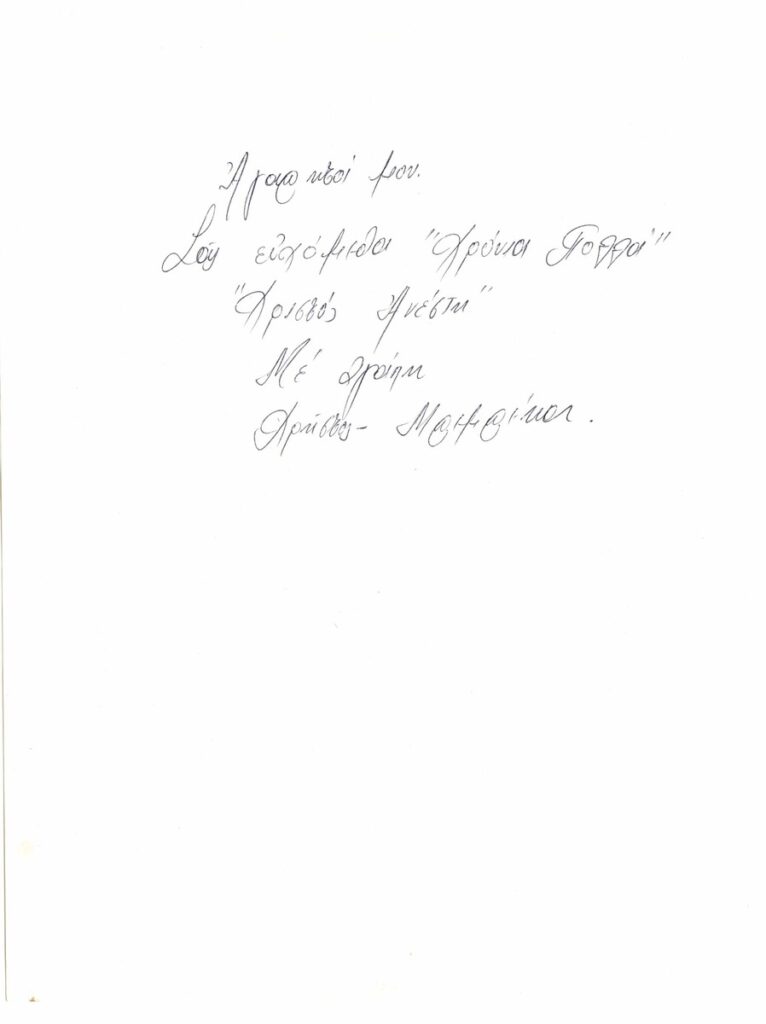 Ἀγαπητοί μου.
Σᾶς εὐχόμεθα "Χρόνια Πολλά"
"Χριστός Ἀνέστη"
Μέ ἀγάπη
Χρῆστος -